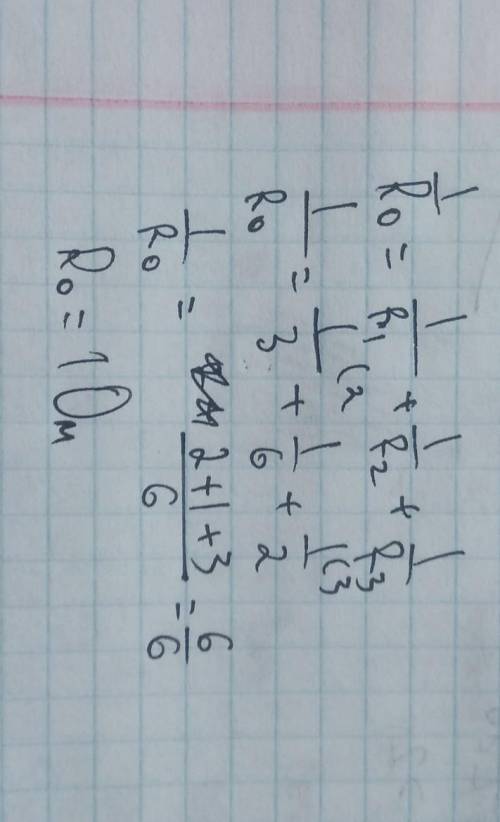 1/R₀ = 1/R₁ + 1/R₂ + 1/R₃
1/R₀ = 1/3 (2 + 1/6 + 1/2 (3
1/R₀ = 2+1+3/6 = 6/6
R₀ = 1 Ом